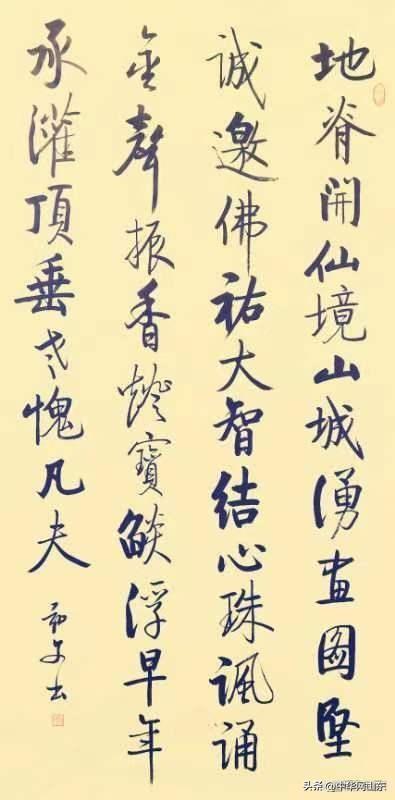 地脊開仙境山城湧畫圖堅
誠邀佛祐大智結心珠諷誦
金聲振香燈寶燄浮早年
承灌頂垂老愧凡夫
头条 @中华网山东